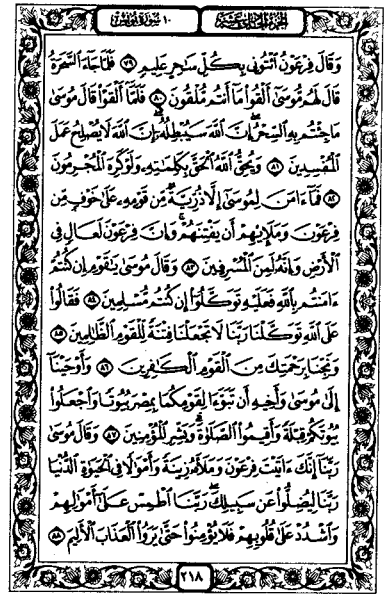 الجزء الحادي عشر ١٠ سورة يونس
وَقَالَ فِرْعَوْنُ ٱئْتُونِى بِكُلِّ سَٰحِرٍ عَلِيمٍ ۝٧٩ فَلَمَّا جَآءَ ٱلسَّحَرَةُ
قَالَ لَهُم مُّوسَىٰٓ أَلْقُوا۟ مَآ أَنتُم مُّلْقُونَ ۝٨٠ فَلَمَّآ أَلْقَوْا۟ قَالَ مُوسَىٰ
مَا جِئْتُم بِهِ ٱلسِّحْرُ إِنَّ ٱللَّهَ سَيُبْطِلُهُۥٓ إِنَّ ٱللَّهَ لَا يُصْلِحُ عَمَلَ
ٱلْمُفْسِدِينَ ۝٨١ وَيُحِقُّ ٱللَّهُ ٱلْحَقَّ بِكَلِمَٰتِهِۦ وَلَوْ كَرِهَ ٱلْمُجْرِمُونَ
۝٨٢ فَمَآ ءَامَنَ لِمُوسَىٰٓ إِلَّا ذُرِّيَّةٌ مِّن قَوْمِهِۦ عَلَىٰ خَوْفٍ مِّن
فِرْعَوْنَ وَمَلَإِي۟هِمْ أَن يَفْتِنَهُمْ ۚ وَإِنَّ فِرْعَوْنَ لَعَالٍ فِى
ٱلْأَرْضِ وَإِنَّهُۥ لَمِنَ ٱلْمُسْرِفِينَ ۝٨٣ وَقَالَ مُوسَىٰ يَٰقَوْمِ إِن كُنتُمْ
ءَامَنتُم بِٱللَّهِ فَعَلَيْهِ تَوَكَّلُوٓا۟ إِن كُنتُم مُّسْلِمِينَ ۝٨٤ فَقَالُوا۟
عَلَى ٱللَّهِ تَوَكَّلْنَا رَبَّنَا لَا تَجْعَلْنَا فِتْنَةً لِّلْقَوْمِ ٱلظَّٰلِمِينَ ۝٨٥
وَنَجِّنَا بِرَحْمَتِكَ مِنَ ٱلْقَوْمِ ٱلْكَٰفِرِينَ ۝٨٦ وَأَوْحَيْنَآ
إِلَىٰ مُوسَىٰ وَأَخِيهِ أَن تَبَوَّءَا لِقَوْمِكُمَا بِمِصْرَ بُيُوتًا وَٱجْعَلُوا۟
بُيُوتَكُمْ قِبْلَةً وَأَقِيمُوا۟ ٱلصَّلَوٰةَ ۗ وَبَشِّرِ ٱلْمُؤْمِنِينَ ۝٨٧ وَقَالَ مُوسَىٰ
رَبَّنَآ إِنَّكَ ءَاتَيْتَ فِرْعَوْنَ وَمَلَأَهُۥ زِينَةً وَأَمْوَٰلًا فِى ٱلْحَيَوٰةِ ٱلدُّنْيَا
رَبَّنَا لِيُضِلُّوا۟ عَن سَبِيلِكَ ۖ رَبَّنَا ٱطْمِسْ عَلَىٰٓ أَمْوَٰلِهِمْ
وَٱشْدُدْ عَلَىٰ قُلُوبِهِمْ فَلَا يُؤْمِنُوا۟ حَتَّىٰ يَرَوُا۟ ٱلْعَذَابَ ٱلْأَلِيمَ ۝٨٨
٢١٨